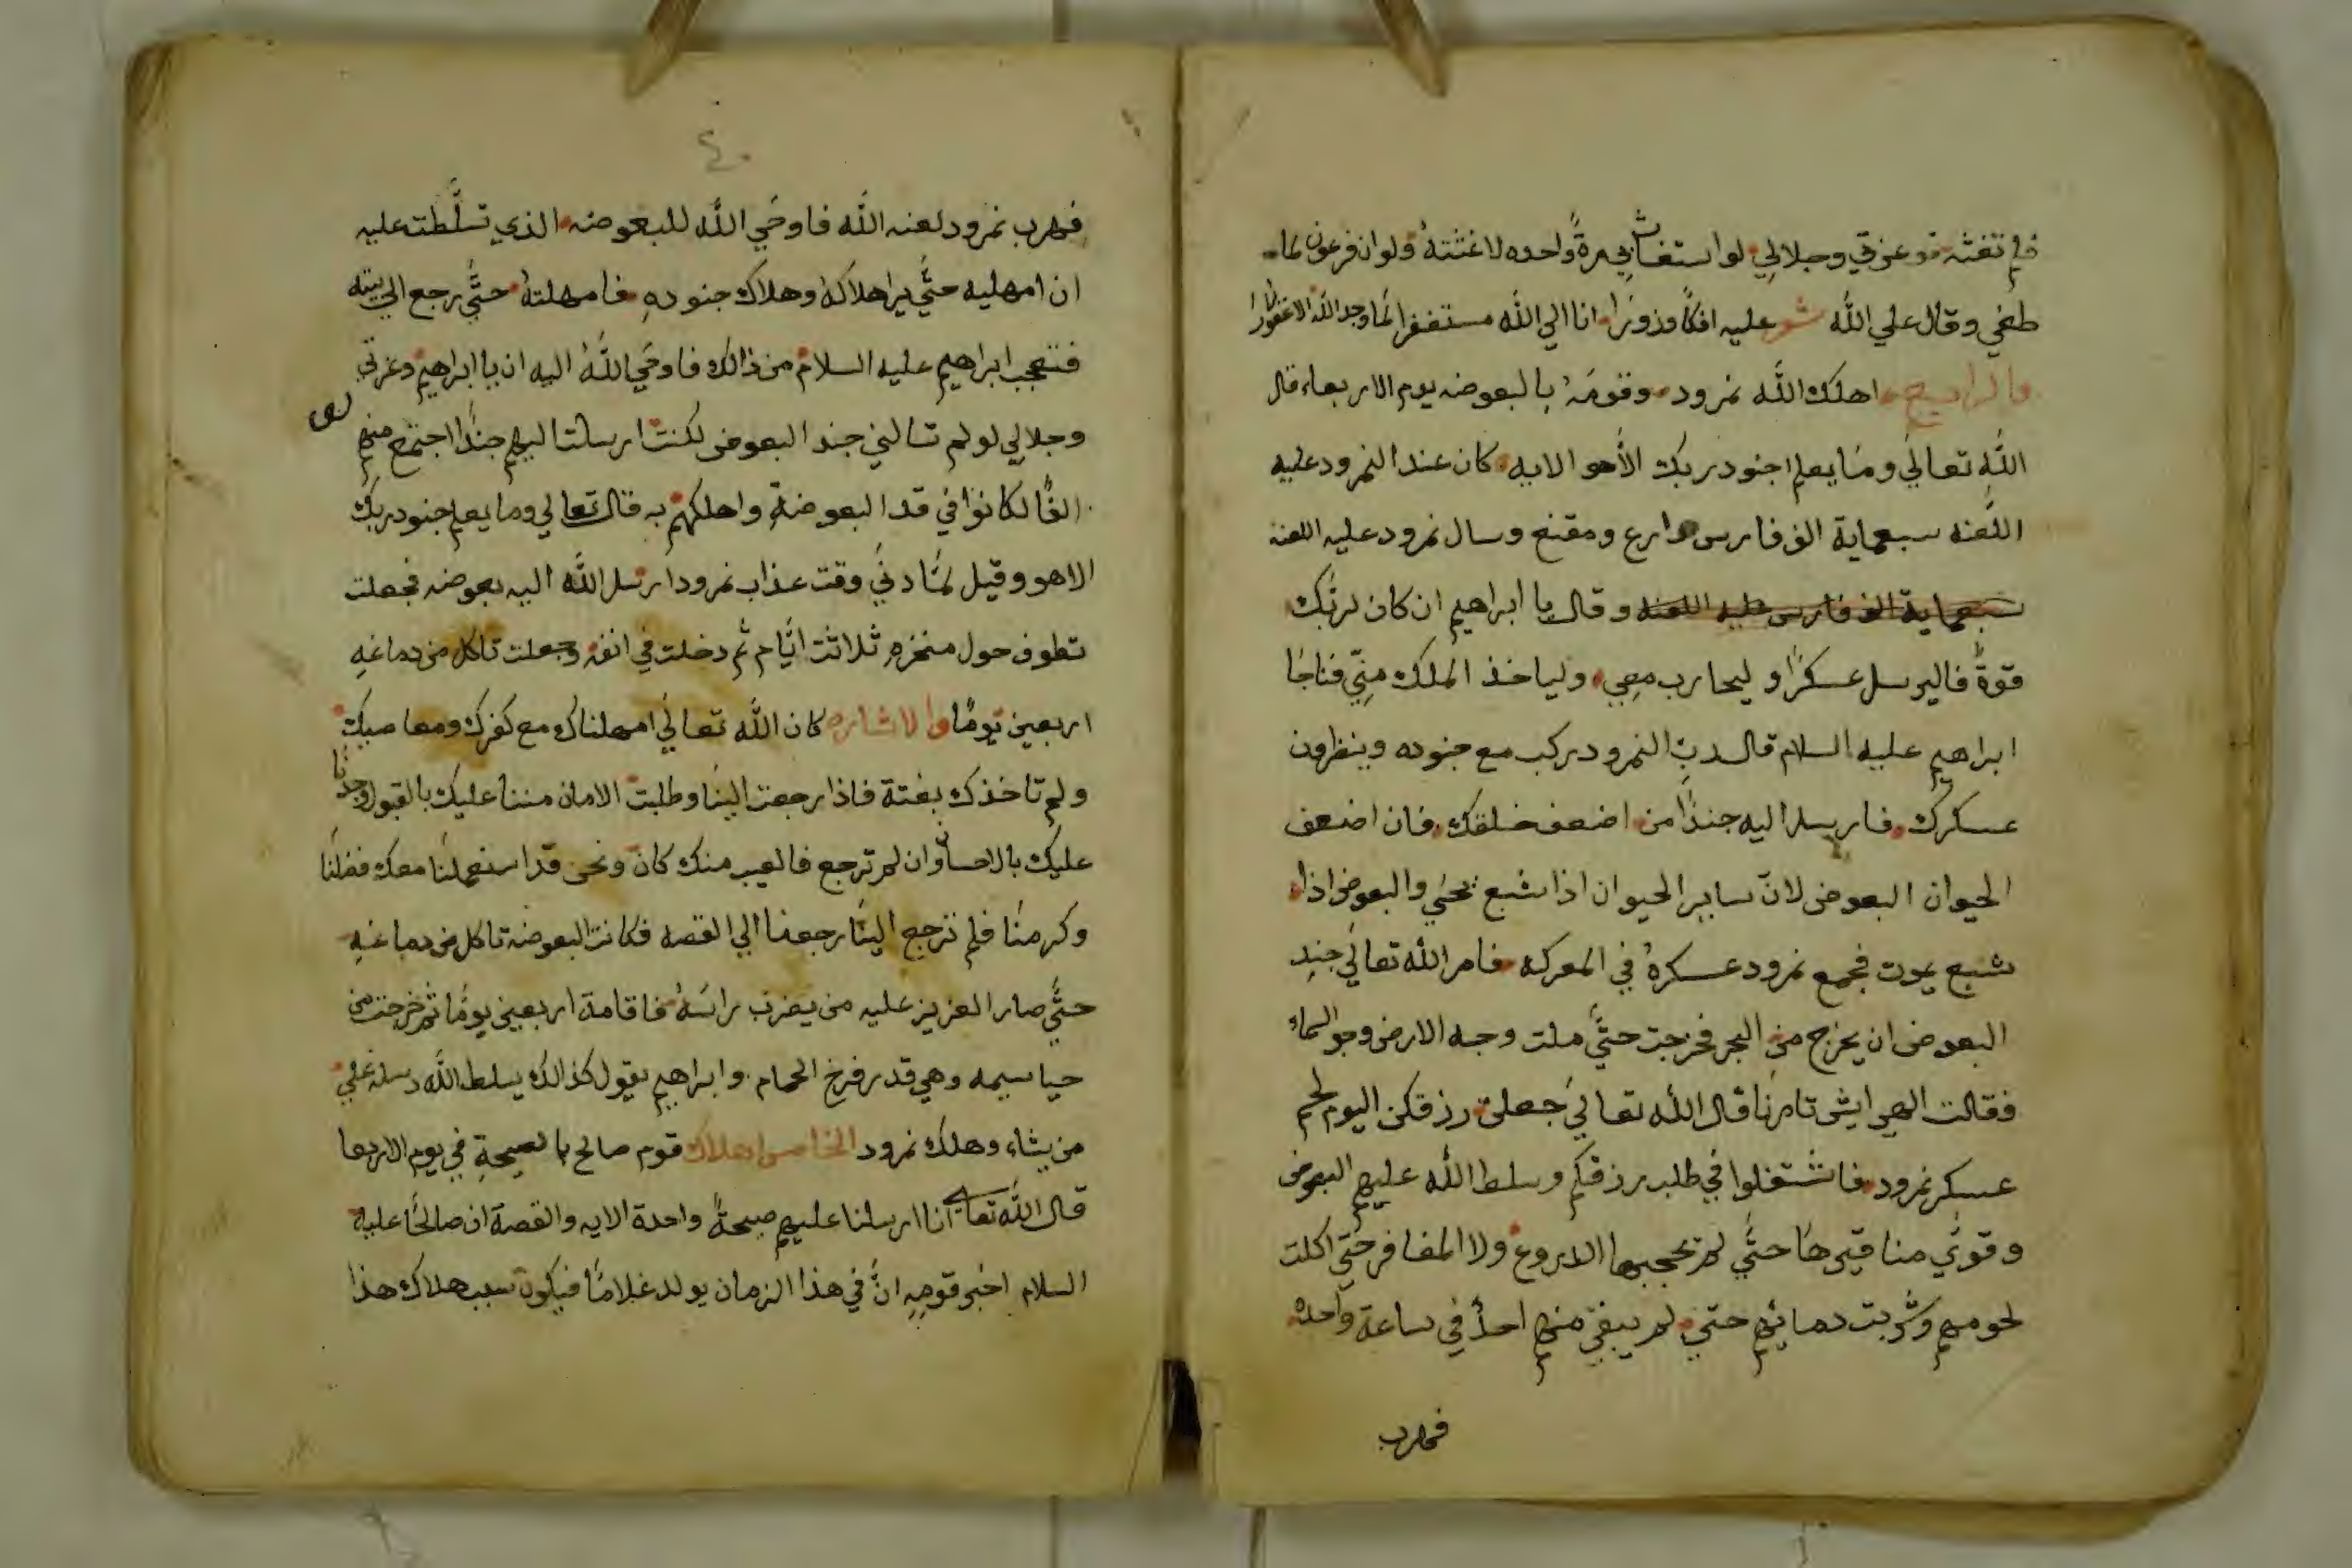 فلم تغثه فوعزتي وجلالي لو استغاث بي مرةً واحده لاغثتهُ ولو ان فرعون لما
طغي وقال علي الله شعر عليه افكاً وزوراً انا الي الله مستغفرا لما وجد الله الا غفورا
والرابع اهلك الله نمرود وقومَهُ بالبعوضه يوم الاربعاء قال
الله تعالي وما يعلم جنود ربك الأ هو الايه كان عند النمرود عليه
اللعنه سبعماية الف فارس دارع ومقنع وسال نمرود عليه اللعنه
سبعماية الف فارس عليه اللعنه وقال يا ابراهيم ان كان لربّك
قوةٌ فاليرسل عسكرًا و ليحارب معِي وليا خذ الملك مِنِّي فناجَا
ابراهيم عليه السلام قال ربّ النمرود يركب مع جنوده وينظرون
عسكرك فارسل اليه جندًا من اضعف خلقك فان اضعف
الحيوان البعوض لانّ ساير الحيوان اذا شبع يحيَي والبعوض اذا
شبع يموت فجمع نمرود عسكرهُ في المعركه فامر الله تعالي جند
البعوض ان يخرج من البحر فخرجت حتَّي ملت وجه الارض وجو السماء
فقالت الهي ايش تامرنا قال الله تعالي جعلت رزقكن اليوم لحم
عسكر نمرود فاشتغلوا في طلب رزقكم وسلط الله عليهم البعوض
وقوَّي مناقيرهَا حتَّي لم تحجبها الدروع ولا المغافر حتي اكلت
لحومهم وشَربت دمائهم حتي لم يبقي منهم احدٌ في ساعة واحدة
فهرب
٤٠
فهرب نمرود لعنه الله فاوحَي الله للبعوضه الذي تسلَّطت عليه
ان امهليه حتَّي يرا هلاكهُ وهلاك جنودهِ فامهلتهُ حتَّي رجع الي بيته
فتعجب ابراهيم عليه السلام من ذالك فاوحَي اللهُ اليه ان يا ابراهيم وعزتي
وجلالي لو لم تسالني جند البعوض لكنت ارسلت اليهم جندًا اجتمع منهم
الفًا لكانوا في قد البعوضةِ واهلكهم به قال تعالي وما يعلم جنود ربك
الا هو وقيل لمَّا دنَي وقت عذاب نمرود ارسل الله اليه بعوضه فجعلت
تطوف حول منخرهِ ثلاثت ايَّام ثم دخلت في انفه وجعلت تاكل من دماغهِ
اربعين يومًا والاشاره كان الله تعالي امهلناك مع كفرك ومعاصيك
ولم تاخذك بغتة فاذا رجعت الينا وطلبت الامان مننا عليك بالقبول وجدنا
عليك بالاحسان وان لم ترجع فالعيب منك كان ونحن قد استعملنا معك فضلنَا
وكرمنَا فلم ترجع الينَا رجعنا الي القصه فكانت البعوضه تاكل من دماغهِ
حتَّي صار العزيز عليه من يضرب راسَهُ فاقامة اربعين يومًا ثم خرجت من
خياسيمه وهي قدر فرخ الحمام وابراهيم يقول كذالك يسلط الله رسله علي
من يشاء وهلك نمرود الخامس اهلاك قوم صالح بالصيحةِ في يوم الاربعا
قال الله تعالي انا ارسلنا عليهم صيحةً واحدة الايه والقصة ان صالحًا عليه
السلام اخبر قومِهِ انَّ في هذا الزمان يولد غلامًا فيكون سبب هلاك هذا